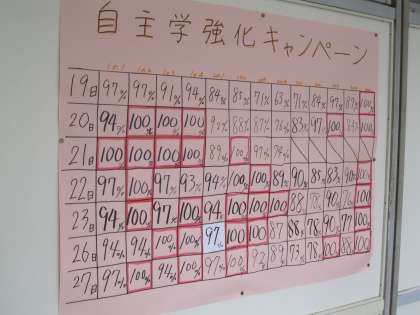 自主学強化キャンペーン
19日 97% 97% 91% 94% 84% 85% 71% 63% 71% 84% 97% 87% 100%
20日 94% 100% 100% 100% 88% 87% 83% 97% 100 100
21日 100 100 100 100 89% 100% 97% 78%
22日 97% 100 97% 93% 94% 100 100 89 90 85 83 90 100
23日 94 100 97 100 94 100 100 100 88 78 90 76 100
26日 94% 94% 100% 100% 97% 100 100 87 88 78 90 77 100
27日 97% 100% 94% 100% 97% 100 92 89 73 78 100 88 100